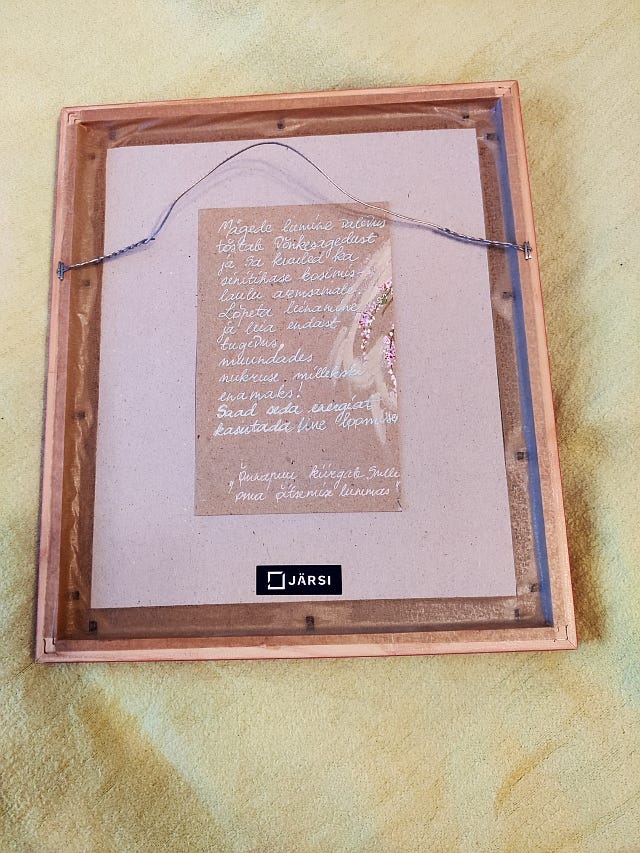 Mägede lumine
tõstab Võnkesagedust
ja Sa kuuled ka
sinitihase kosimis-
laulu armsamale.
Lõpeta leinamine
ja leia endast
tugevus,
muundades
nukruse millekski
enamaks!
Saad seda energiat
kasutada Uue loomiseks
"Õunapuu kiirgab Sulle
oma õitsemise lummas"
JÄRSI